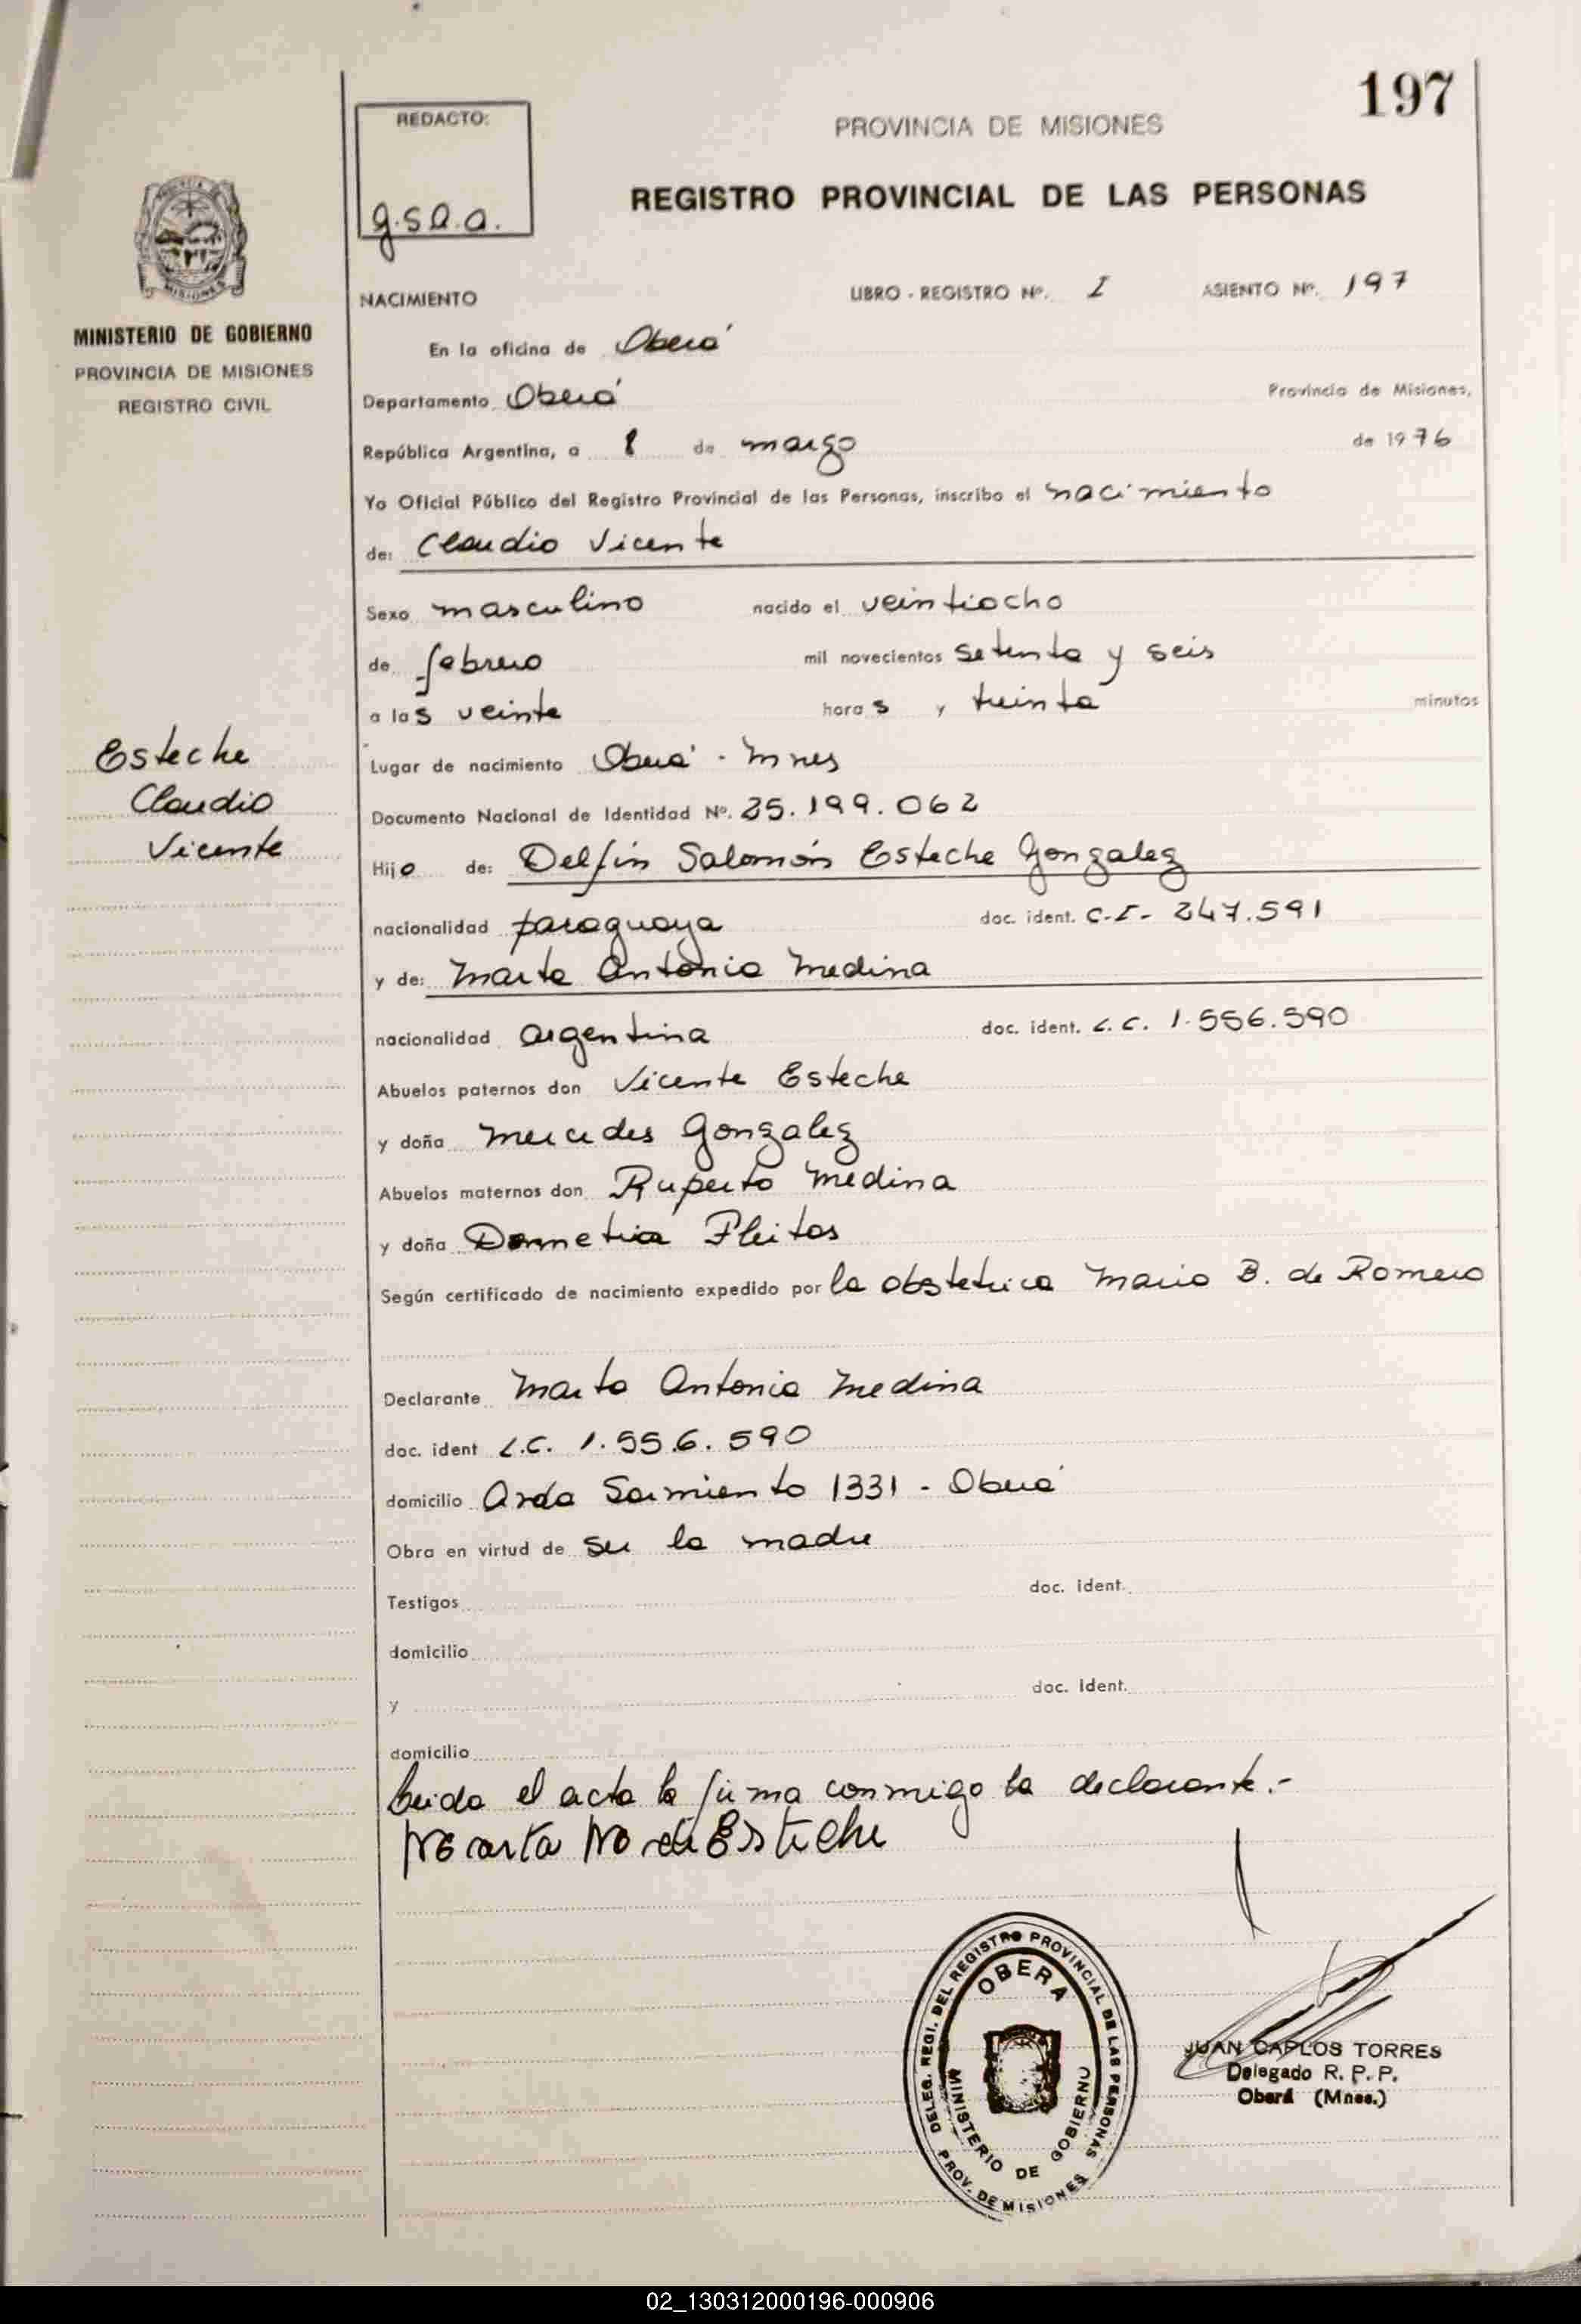 197
REDACTO:
g.s.a.a.
PROVINCIA DE MISIONES
REGISTRO PROVINCIAL DE LAS PERSONAS
MISIONES
MINISTERIO DE GOBIERNO
PROVINCIA DE MISIONES
REGISTRO CIVIL
NACIMIENTO LIBRO - REGISTRO Nº. I ASIENTO Nº. 197
En la oficina de Oberá
Departamento Oberá Provincia de Misiones,
República Argentina, a 8 de marzo de 1976
Yo Oficial Público del Registro Provincial de las Personas, inscribo el nacimiento
de: Claudio Vicente
Sexo masculino nacido el veintiocho
de febrero mil novecientos setenta y seis
a las veinte horas y treinta minutos
Esteche
Claudio
Vicente
Lugar de nacimiento Oberá - Mnes
Documento Nacional de Identidad Nº. 25.199.062
Hijo de: Delfín Salomón Esteche Gonzalez
nacionalidad paraguaya doc. ident. C.I. 247.591
y de: Marta Antonia Medina
nacionalidad argentina doc. ident. L.C. 1.556.590
Abuelos paternos don Vicente Esteche
y doña Mercedes Gonzalez
Abuelos maternos don Ruperto Medina
y doña Demetria Fleitas
Según certificado de nacimiento expedido por la obstetrica Maria B. de Romero
Declarante Marta Antonia Medina
doc. ident L.C. 1.556.590
domicilio Avda Sarmiento 1331 - Oberá
Obra en virtud de ser la madre
Testigos doc. ident.
domicilio
y doc. ident.
domicilio
Leida el acta la firma conmigo la declarante.-
Marta M de Esteche
DELEG. REGI. DEL REGISTRO PROVINCIAL DE LAS PERSONAS
OBERA
MINISTERIO DE GOBIERNO
PROV. DE MISIONES
JUAN CARLOS TORRES
Delegado R. P. P.
Oberá (Mnes.)
02_130312000196-000906